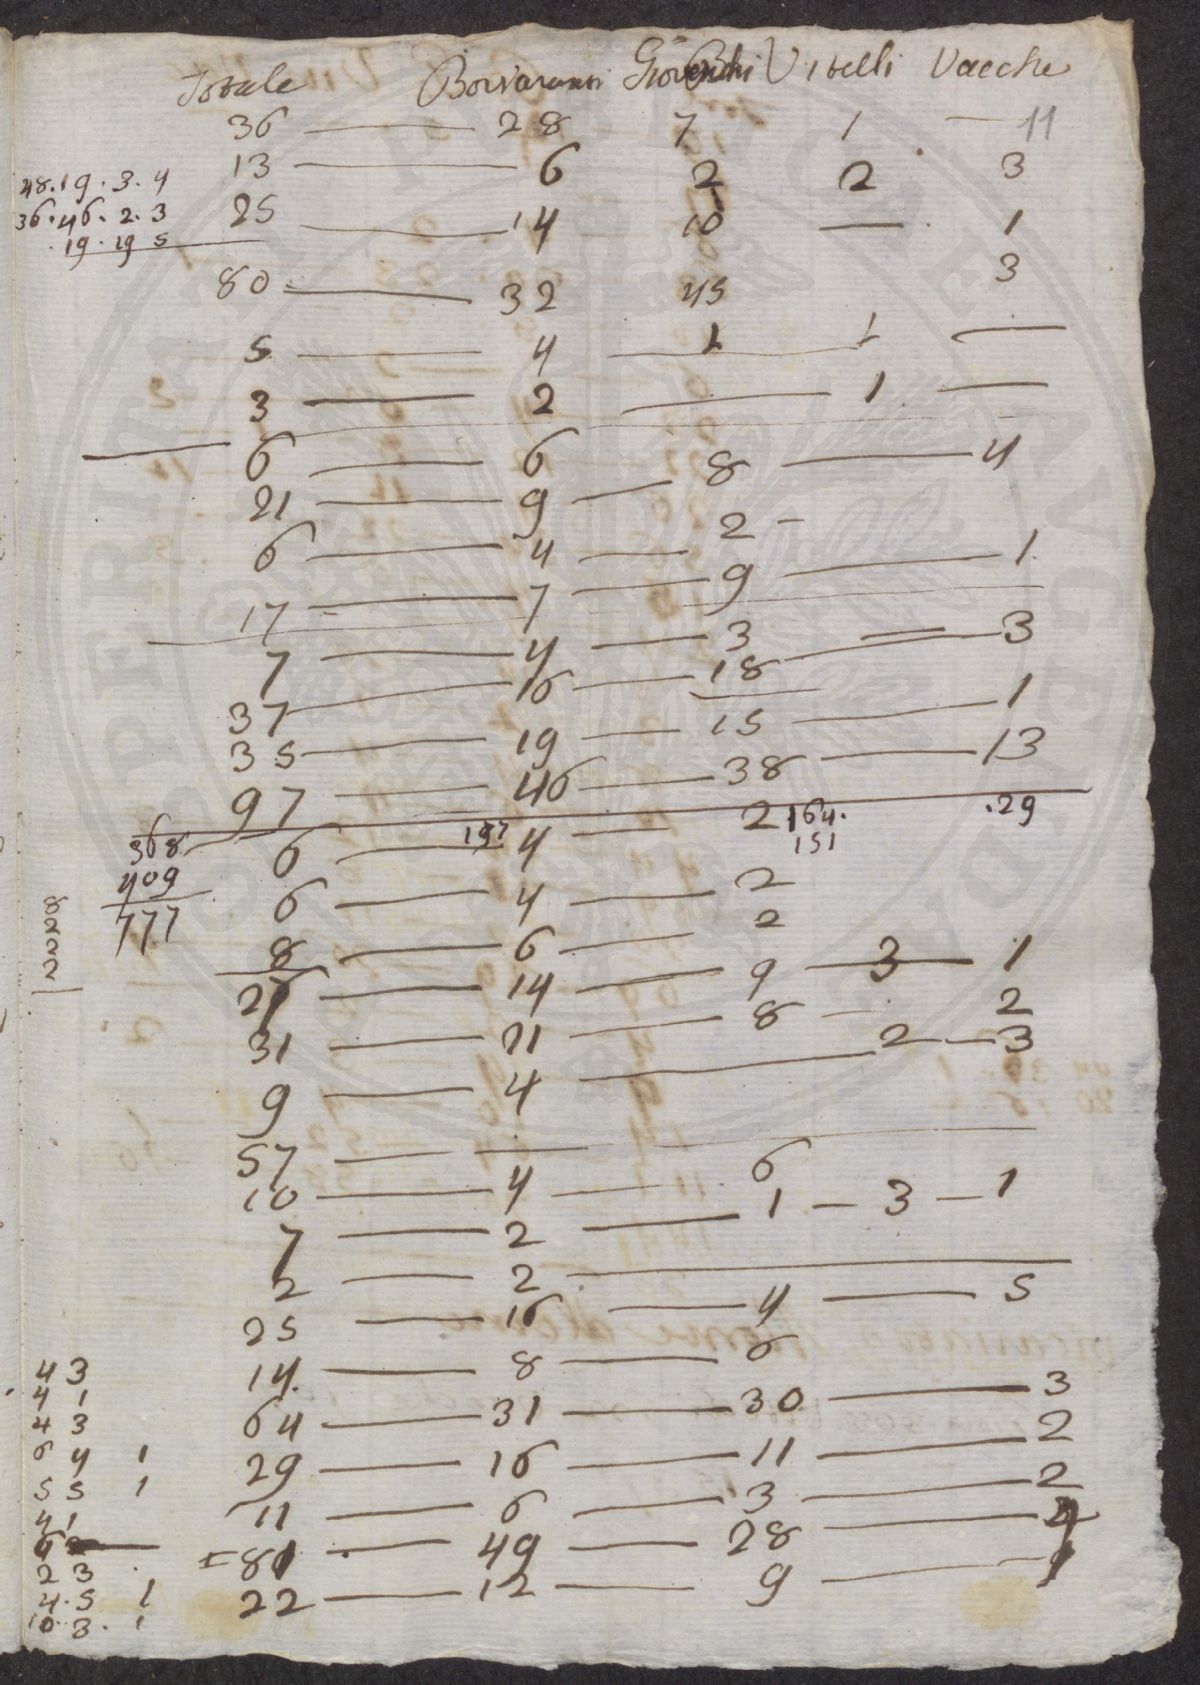 Totale Bovi aranti Giovenchi Vitelli Vacche
36 — 28 7 1 — 11
13 — 6 2 2 3
48. 19. 3. 4
36. 46. 2. 3
19. 19 5
25 — 14 10 — 1
80 — 32 45 3
5 — 4 — 1 1 —
3 — 2 — 1 —
6 — 6
21 — 9 — 8 — 4
6 — 4 — 2 —
17 — 7 — 9 — 1
7 — 4 — 3 —
37 — 16 — 18 — 3
35 — 19 — 15 — 1
97 — 46 — 38 — 13
197 164. .29
151
368
409
777
8222
6 — 4 — 2
6 — 4 — 2
8 — 6 — 2
27 — 14 — 9 — 3 — 1
31 — 21 — 8 — 2
9 — 4 — 2 — 3
57 — —
10 — 4 — 6
7 — 2 — 1 — 3 — 1
2 — 2 —
25 — 16 — 4 — 5
14. — 8 — 6
64 — 31 — 30 — 3
29 — 16 — 11 — 2
11 — 6 — 3 — 2
81 — 49 — 28 — 4
22 — 12 — 9 — 1
4 3
4 1
4 3
6 4 1
5 5 1
4 1
6 2 —
2 3
4. 5 1
10. 3. 1